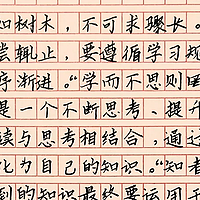 如树木，不可求骤长。
尝辄止，要遵循学习规
序渐进。“学而不思则罔
是一个不断思考、提升
读与思考相结合，通过
化为自己的知识。“知者
到的知识最终要运用于